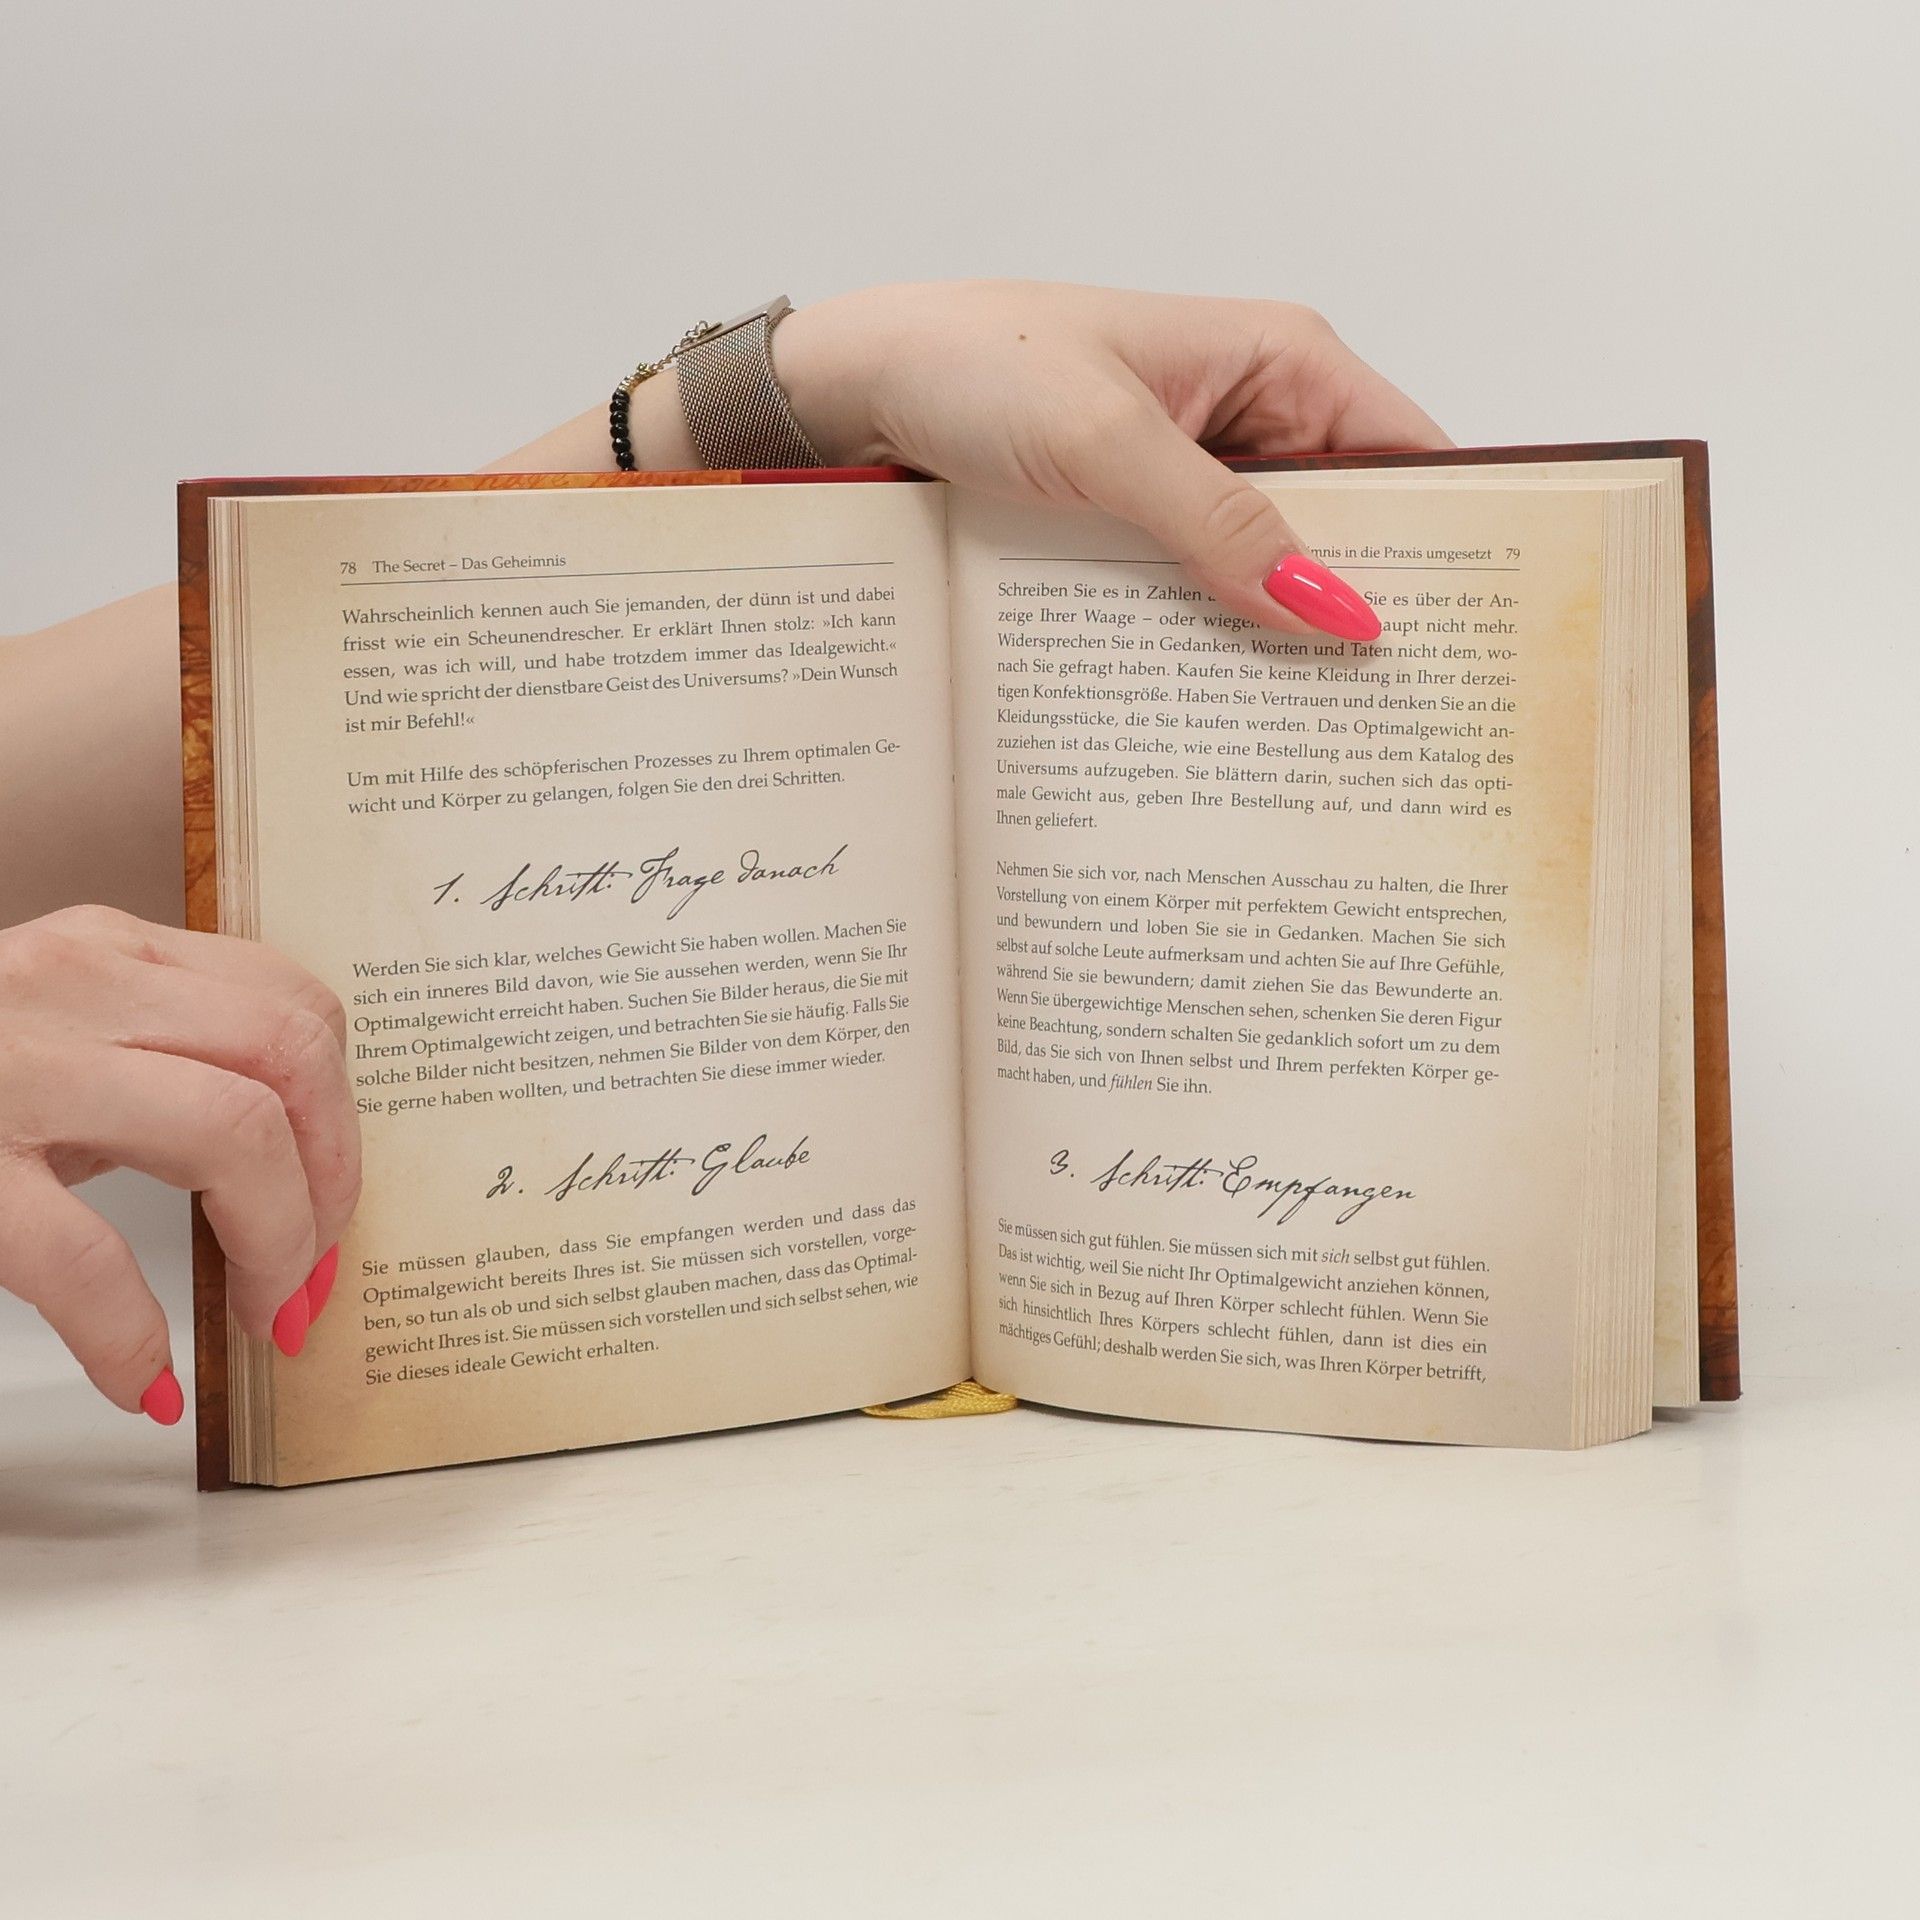 78 The Secret – Das Geheimnis
Wahrscheinlich kennen auch Sie jemanden, der dünn ist und dabei
frisst wie ein Scheunendrescher. Er erklärt Ihnen stolz: »Ich kann
essen, was ich will, und habe trotzdem immer das Idealgewicht.«
Und wie spricht der dienstbare Geist des Universums? »Dein Wunsch
ist mir Befehl!«
Um mit Hilfe des schöpferischen Prozesses zu Ihrem optimalen Ge-
wicht und Körper zu gelangen, folgen Sie den drei Schritten.
1. Schritt: Frage danach
Werden Sie sich klar, welches Gewicht Sie haben wollen. Machen Sie
sich ein inneres Bild davon, wie Sie aussehen werden, wenn Sie Ihr
Optimalgewicht erreicht haben. Suchen Sie Bilder heraus, die Sie mit
Ihrem Optimalgewicht zeigen, und betrachten Sie sie häufig. Falls Sie
solche Bilder nicht besitzen, nehmen Sie Bilder von dem Körper, den
Sie gerne haben wollten, und betrachten Sie diese immer wieder.
2. Schritt: Glaube
Sie müssen glauben, dass Sie empfangen werden und dass das
Optimalgewicht bereits Ihres ist. Sie müssen sich vorstellen, vorge-
ben, so tun als ob und sich selbst glauben machen, dass das Optimal-
gewicht Ihres ist. Sie müssen sich vorstellen und sich selbst sehen, wie
Sie dieses ideale Gewicht erhalten.
in die Praxis umgesetzt 79
Schreiben Sie es in Zahlen Sie es über der An-
zeige Ihrer Waage – oder nicht mehr.
Widersprechen Sie in Gedanken, Worten und Taten nicht dem, wo-
nach Sie gefragt haben. Kaufen Sie keine Kleidung in Ihrer derzei-
tigen Konfektionsgröße. Haben Sie Vertrauen und denken Sie an die
Kleidungsstücke, die Sie kaufen werden. Das Optimalgewicht an-
zuziehen ist das Gleiche, wie eine Bestellung aus dem Katalog des
Universums aufzugeben. Sie blättern darin, suchen sich das opti-
male Gewicht aus, geben Ihre Bestellung auf, und dann wird es
Ihnen geliefert.
Nehmen Sie sich vor, nach Menschen Ausschau zu halten, die Ihrer
Vorstellung von einem Körper mit perfektem Gewicht entsprechen,
und bewundern und loben Sie sie in Gedanken. Machen Sie sich
selbst auf solche Leute aufmerksam und achten Sie auf Ihre Gefühle,
während Sie sie bewundern; damit ziehen Sie das Bewunderte an.
Wenn Sie übergewichtige Menschen sehen, schenken Sie deren Figur
keine Beachtung, sondern schalten Sie gedanklich sofort um zu dem
Bild, das Sie sich von Ihnen selbst und Ihrem perfekten Körper ge-
macht haben, und fühlen Sie ihn.
3. Schritt: Empfangen
Sie müssen sich gut fühlen. Sie müssen sich mit sich selbst gut fühlen.
Das ist wichtig, weil Sie nicht Ihr Optimalgewicht anziehen können,
wenn Sie sich in Bezug auf Ihren Körper schlecht fühlen. Wenn Sie
sich hinsichtlich Ihres Körpers schlecht fühlen, dann ist dies ein
mächtiges Gefühl; deshalb werden Sie sich, was Ihren Körper betrifft,